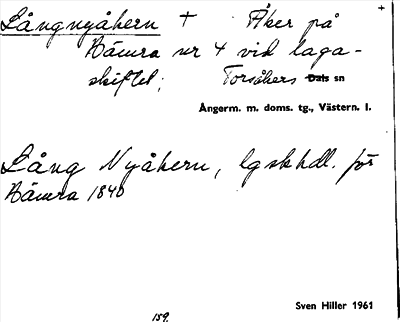 Långnyåkern + Åker på +
Bämra nr 4 vid laga-
skiftet; Torsåkers Dals sn
Ångerm. m. doms. tg., Västern. l.
Lång Nyåkern, lgskhdl. för
Bämra 1840
Sven Hiller 1961
159.